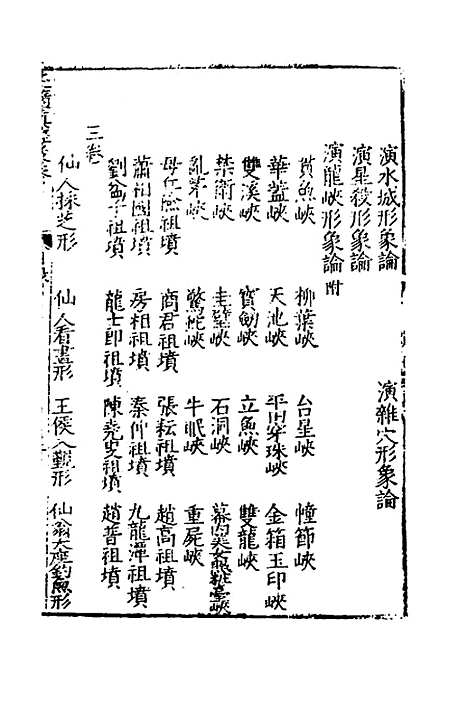 演水城形象論
演星殺形象論 演雜穴形象論
演龍峽形象論附
貫魚峽 柳葉峽 台星峽 幢節峽
華蓋峽 天池峽 平田穿珠峽 金箱玉印峽
雙溪峽 寶劍峽 立魚峽 雙龍峽
禁衛峽 圭璧峽 石洞峽
亂茅峽 驚蛇峽 牛眠峽 重屍峽
母丘儉祖墳 商君祖墳 張耘祖墳 趙高祖墳
蕭相國祖墳 房相祖墳 秦仲祖墳 九龍潭祖墳
劉盆子祖墳 龍士郎祖墳 陳堯叟祖墳 趙普祖墳
三卷
仙人採芝形 仙人看書形 王侯入覲形 仙翁大座釣魚形